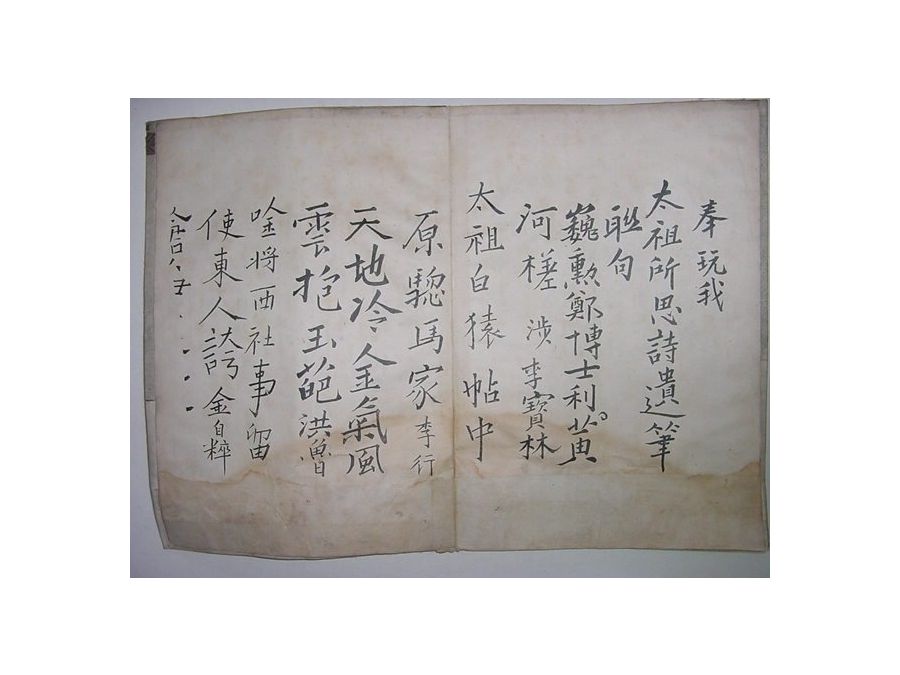 奉玩我
太祖所思詩遺筆
聯句
巍勲鄭博士利黄
河槎渉李寶林
太祖白猿帖中
原驄馬家李行
天地冷金氣風
雲抱玉葩洪魯
唫將西社事留
使東人誇金自粹